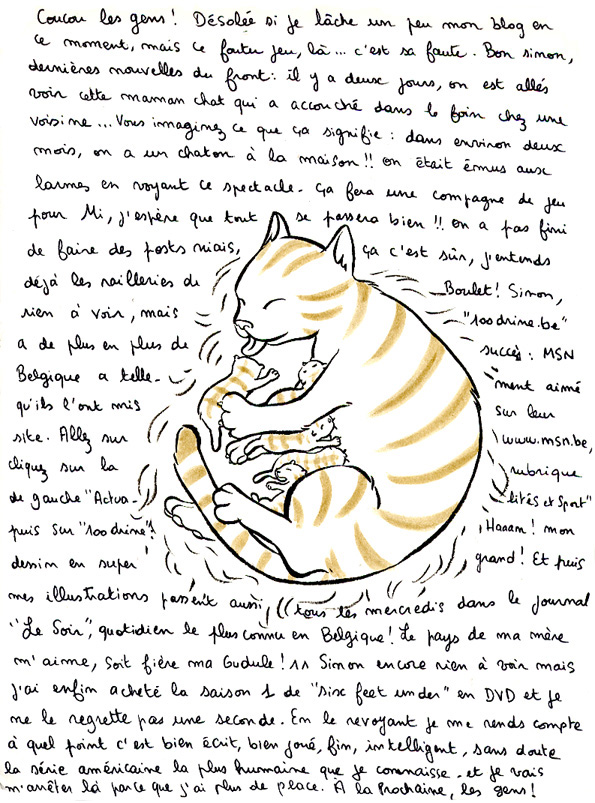 Coucou les gens! Désolée si je lâche un peu mon blog en
ce moment, mais ce foutu jeu, là... c'est sa faute. Bon simon,
dernières nouvelles du front: il y a deux jours, on est allés
voir cette maman chat qui a accouché dans le foin chez une
voisine... Vous imaginez ce que ça signifie: dans environ deux
mois, on a un chaton à la maison!! On était émus aux
larmes en voyant ce spectacle. ça fera une compagne de jeu
pour Mi, j'espère que tout se passera bien!! On a pas fini
de faire des posts niais, ça c'est sûr, j'entends
déjà les railleries de Boulet! Simon,
rien à voir, mais "100drine.be"
a de plus en plus de succès: MSN
Belgique a telle- ment aimé
qu'ils l'ont mis sur leur
site. Allez sur www.msn.be,
cliquez sur la rubrique
de gauche "Actua- lités et Sport"
puis sur "100drine"! Haaam! mon
dessin en super grand! Et puis
mes illustrations passent aussi tous les mercredis dans le journal
"Le Soir", quotidien le plus connu en Belgique! Le pays de ma mère
m'aime, soit fière ma Gudule! ^^ Simon encore rien à voir mais
j'ai enfin acheté la saison 1 de "six feet under" en DVD et je
me le regrette pas une seconde. En le revoyant je me rends compte
à quel point c'est bien écrit, bien joué, fin, intelligent, sans doute
la série américaine la plus humaine que je connaisse. et je vais
m'arrêter là parce que j'ai plus de place. À la prochaine, les gens!